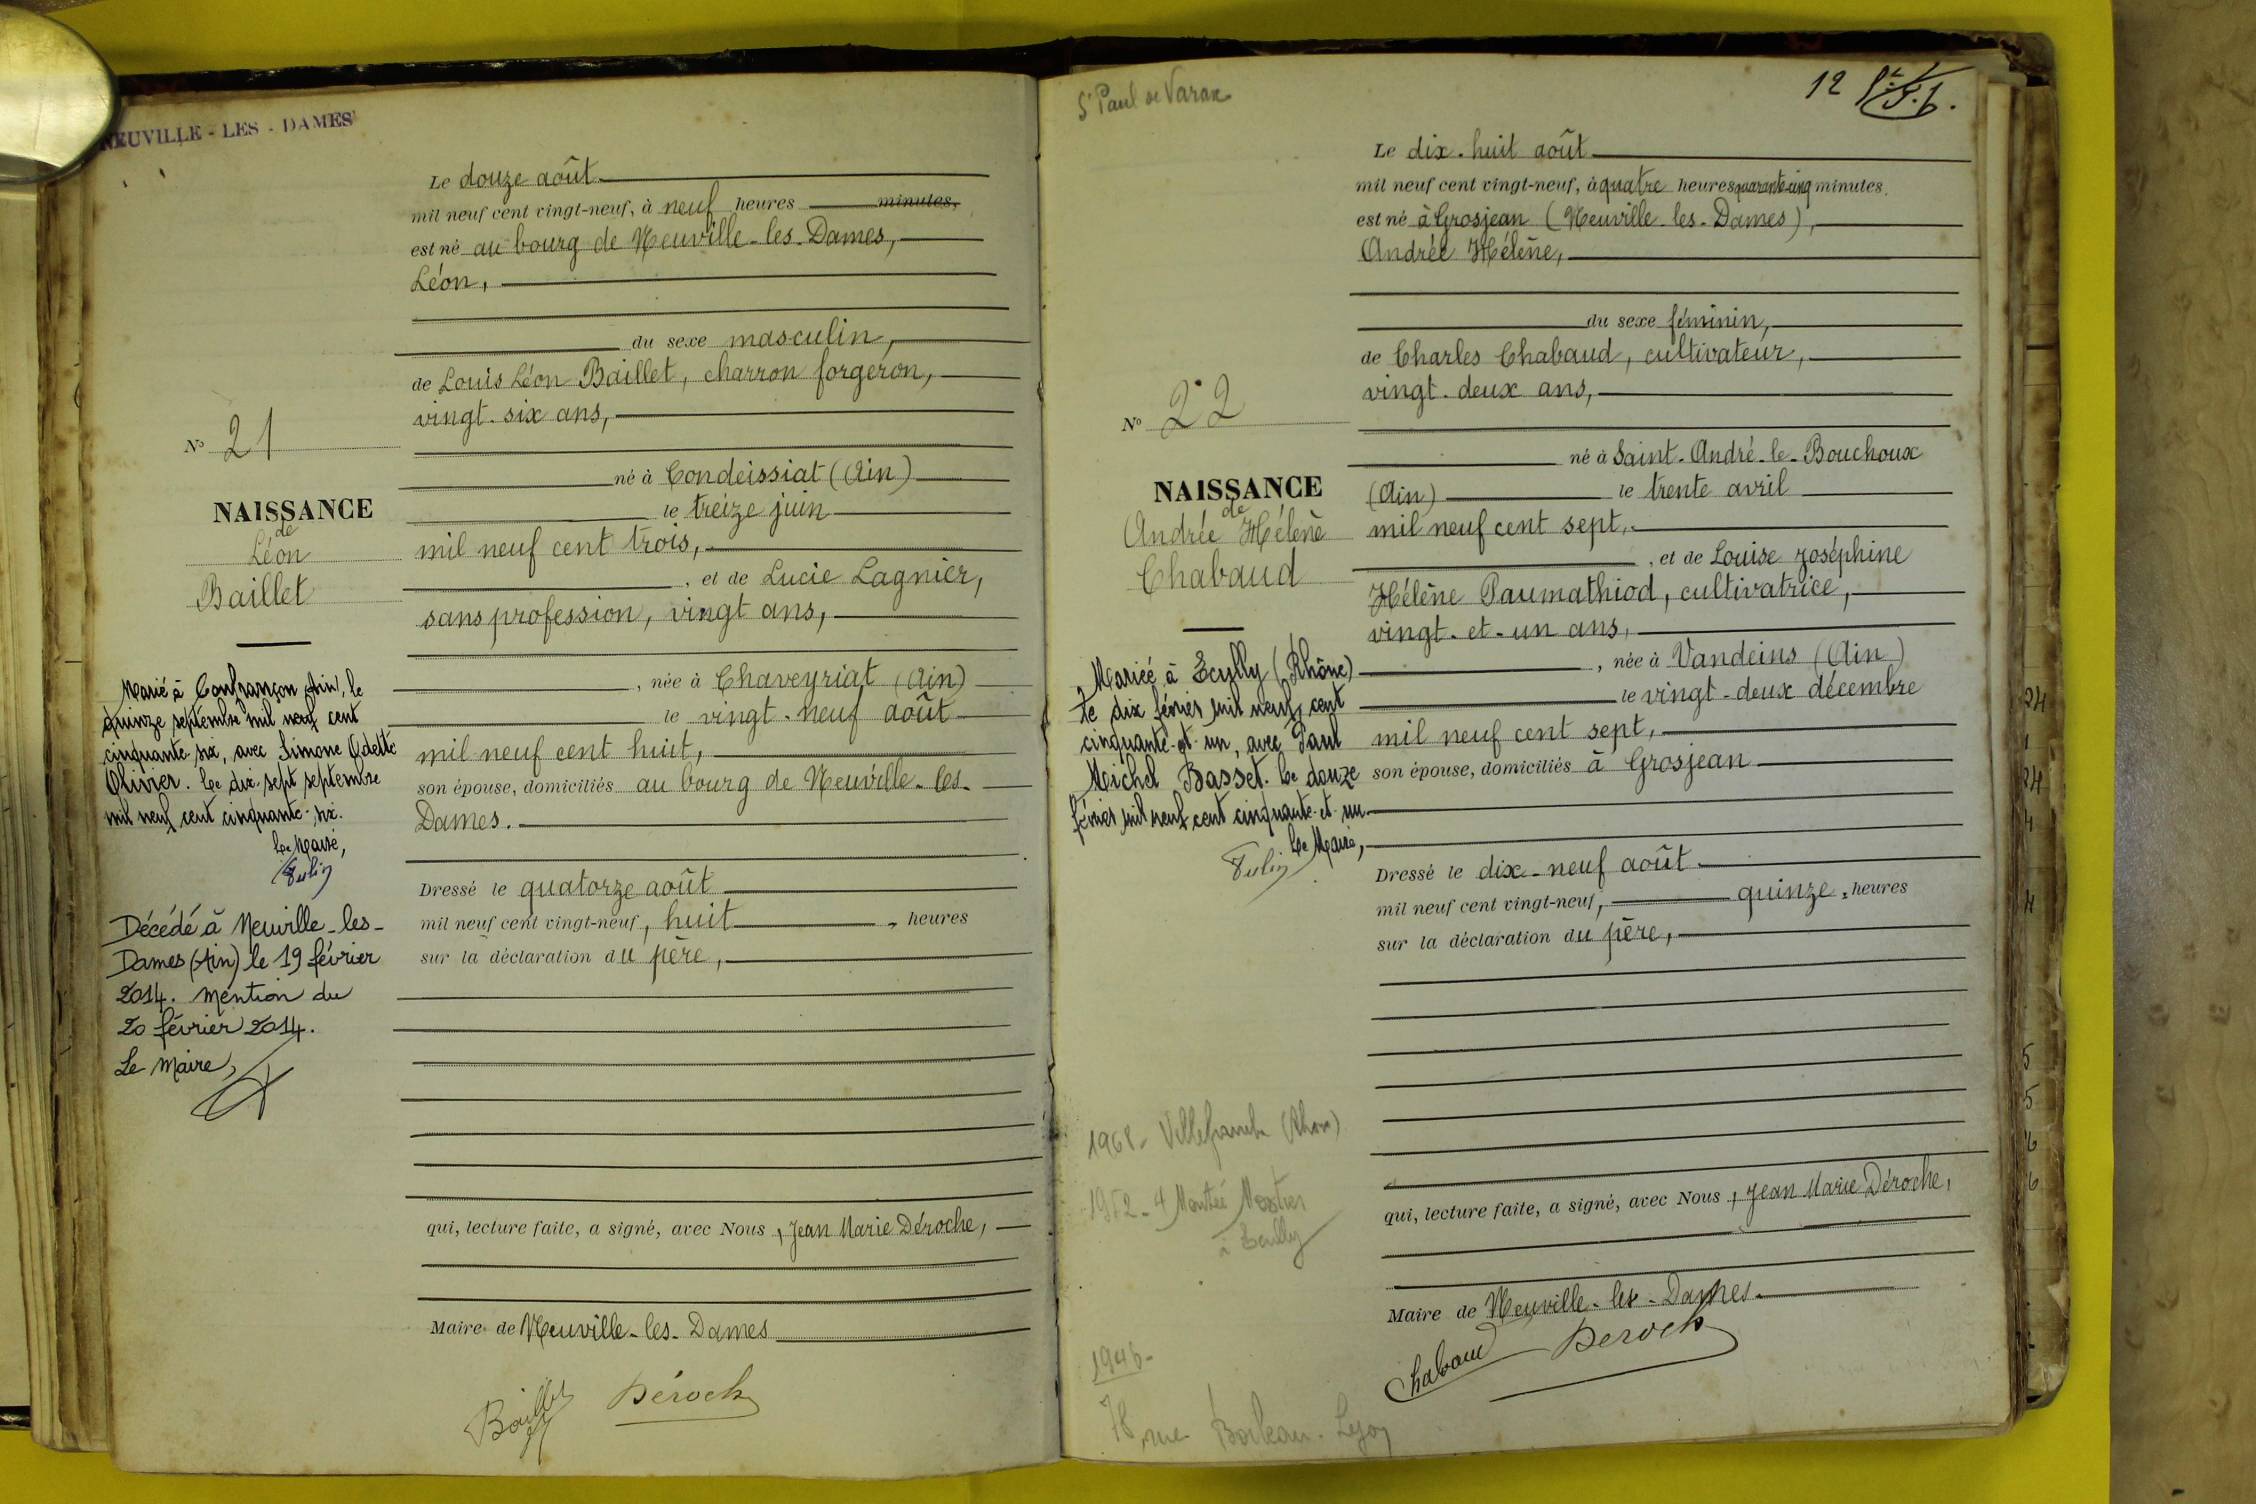 NEUVILLE - LES - DAMES
Le douze août
mil neuf cent vingt-neuf, à neuf heures minutes,
est né au bourg de Neuville-les-Dames,
Léon,
du sexe masculin,
de Louis Léon Baillet, charron forgeron,
vingt-six ans,
né à Condeissiat (Ain)
le treize juin
mil neuf cent trois,
, et de Lucie Lagnier,
sans profession, vingt ans,
, née à Chaveyriat (Ain)
le vingt-neuf août
mil neuf cent huit,
son épouse, domiciliés au bourg de Neuville-les-
Dames.
Dressé le quatorze août
mil neuf cent vingt-neuf, huit, heures
sur la déclaration du père,
qui, lecture faite, a signé, avec Nous, Jean Marie Déroche,
Maire de Neuville-les-Dames
Baillet Déroche
No 21
NAISSANCE
de
Léon
Baillet
Marié à Confrançon Ain, le
quinze septembre mil neuf cent
cinquante-six, avec Simone Odette
Olivier. Le dix-sept septembre
mil neuf cent cinquante-six.
Le Maire,
Décédé à Neuville-les-
Dames (Ain) le 19 février
2014. Mention du
20 février 2014.
Le Maire,
St Paul de Varax
12
Le dix-huit août
mil neuf cent vingt-neuf, à quatre heures quarante-cinq minutes
est né à Grosjean (Neuville-les-Dames),
Andrée Hélène,
du sexe féminin,
de Charles Chabaud, cultivateur,
vingt-deux ans,
né à Saint-André-le-Bouchoux
(Ain) le trente avril
mil neuf cent sept,
, et de Louise Joséphine
Hélène Paumathiod, cultivatrice,
vingt-et-un ans,
, née à Vandeins (Ain)
le vingt-deux décembre
mil neuf cent sept,
son épouse, domiciliés à Grosjean
Dressé le dix-neuf août
mil neuf cent vingt-neuf, quinze, heures
sur la déclaration du père,
qui, lecture faite, a signé, avec Nous, Jean Marie Déroche,
Maire de Neuville-les-Dames.
Chabaud Déroche
No 22
NAISSANCE
de
Andrée Hélène
Chabaud
Mariée à Ecully (Rhône)
le dix février mil neuf cent
cinquante-et-un, avec Paul
Michel Basset. Le douze
février mil neuf cent cinquante-et-un
Le Maire,
1968 - Villefranche (Rhône)
1952 - 4 Montée
à Ecully
1946 -
78, rue Boileau. Lyon
24
24
4
4
5
5
6
6